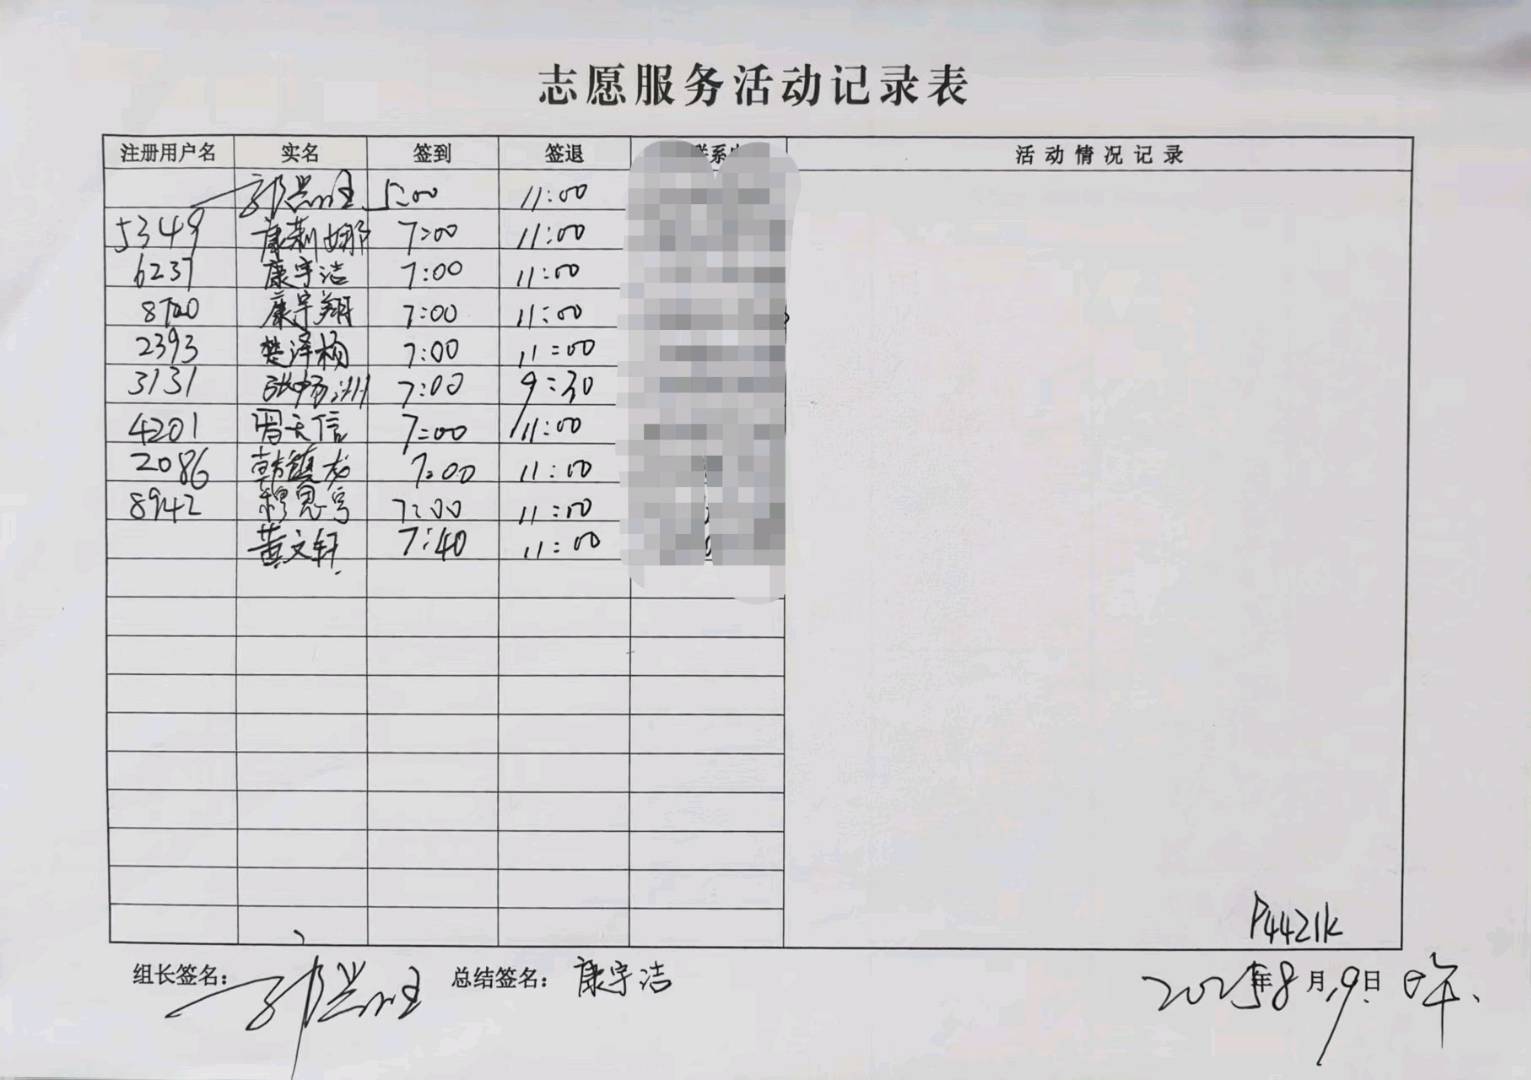 志愿服务活动记录表
注册用户名 实名 签到 签退 联系 活动情况记录
5:00 11:00
5349 康莉娜 7:00 11:00
6237 康宇洁 7:00 11:00
8720 康宇翔 7:00 11:00
2393 樊泽杨 7:00 11:00
3131 7:00 9:30
4201 周天信 7:00 11:00
2086 韩镇龙 7:00 11:00
8942 穆思宇 7:00 11:00
黄文轩 7:40 11:00
P4421K
组长签名： 总结签名：康宇洁 2025年8月9日